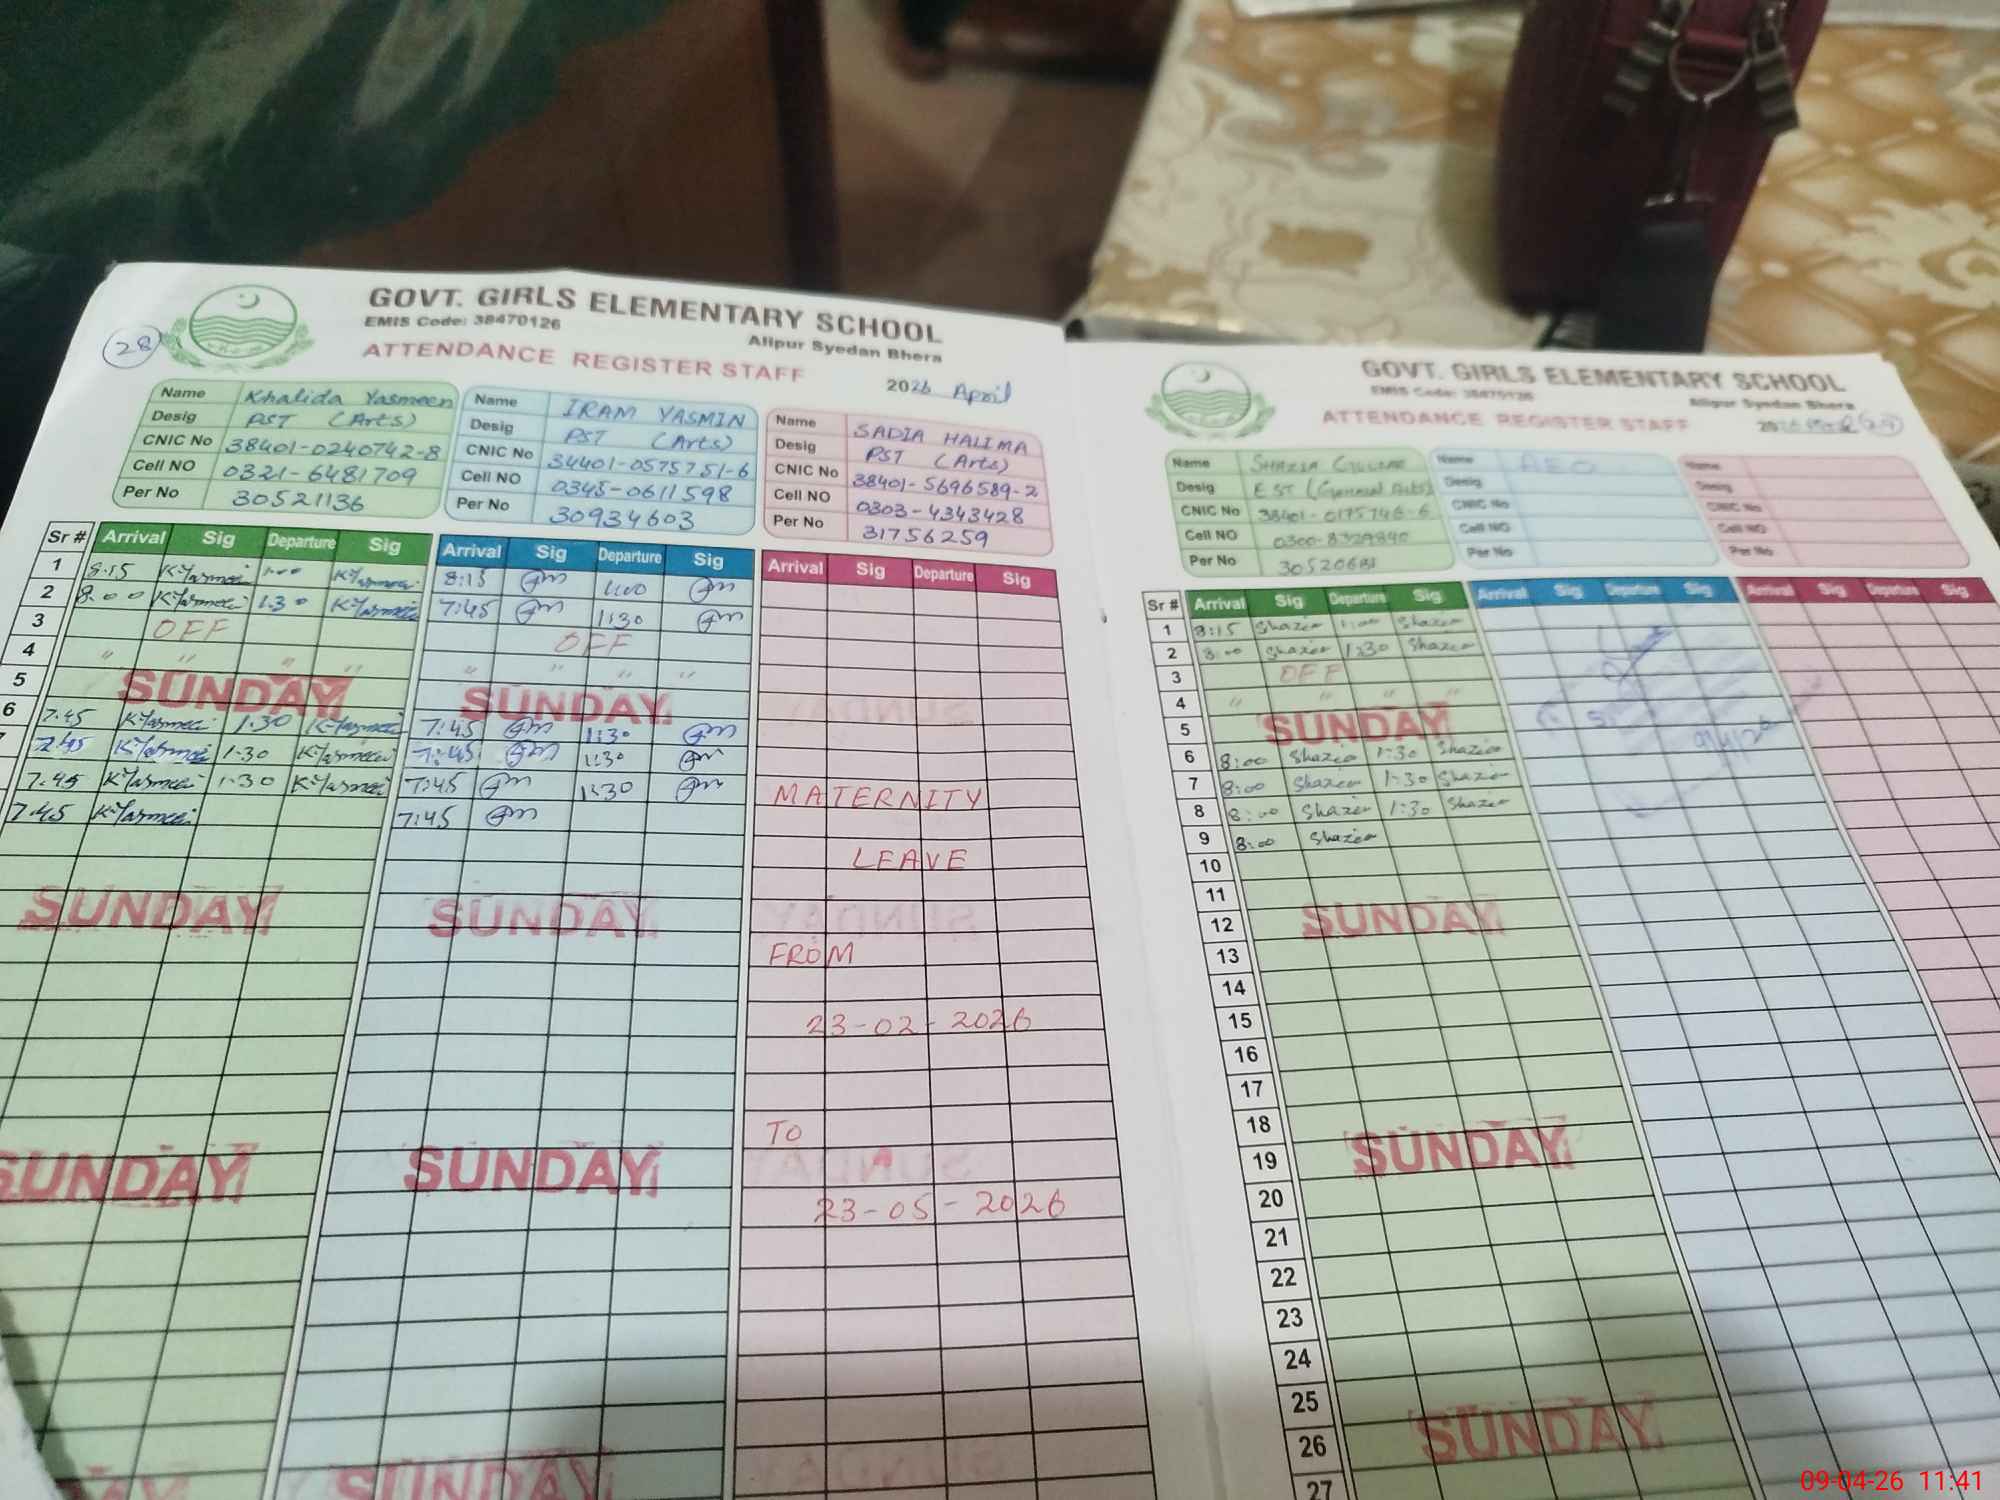 28
GOVT. GIRLS ELEMENTARY SCHOOL
EMIS Code: 38470126
Alipur Syedan Bhera
ATTENDANCE REGISTER STAFF
2026 April
Name Khalida Yasmeen
Desig PST (Arts)
CNIC No 38401-0240742-8
Cell NO 0321-6481709
Per No 30521136
Name IRAM YASMIN
Desig PST (Arts)
CNIC No 34401-0575751-6
Cell NO 0345-0611598
Per No 30934603
Name SADIA HALIMA
Desig PST (Arts)
CNIC No 38401-5696589-2
Cell NO 0303-4343428
Per No 31756259
Sr # Arrival Sig Departure Sig Arrival Sig Departure Sig Arrival Sig Departure Sig
1 8:15 K.Yasmeen 1:00 K.Yasmeen 8:15 1:00
2 8:00 K.Yasmeen 1:30 K.Yasmeen 7:45 1:30
3 OFF OFF
4 " " " " " " " "
5 SUNDAY SUNDAY
6 7:45 K.Yasmeen 1:30 K.Yasmeen 7:45 1:30
7:45 K.Yasmeen 1:30 K.Yasmeen 7:45 1:30
7:45 K.Yasmeen 1:30 K.Yasmeen 7:45 1:30
7:45 K.Yasmeen 7:45
MATERNITY
LEAVE
SUNDAY SUNDAY
FROM
23-02-2026
TO
SUNDAY SUNDAY
23-05-2026
SUNDAY
GOVT. GIRLS ELEMENTARY SCHOOL
EMIS Code: 38470126
Alipur Syedan Bhera
ATTENDANCE REGISTER STAFF
Name SHAZIA
Desig EST (General Arts)
CNIC No 38401-0175746-6
Cell NO
Per No
Name AEO
Desig
CNIC No
Cell NO
Per No
Name
Desig
CNIC No
Cell NO
Per No
Sr # Arrival Sig Departure Sig Arrival Sig Departure Sig Arrival Sig Departure Sig
1 8:15 Shazia 1:00 Shazia
2 8:00 Shazia 1:30 Shazia
3 OFF
4 " " " "
5 SUNDAY
6 8:00 Shazia 1:30 Shazia
7 8:00 Shazia 1:30 Shazia
8 8:00 Shazia 1:30 Shazia
9 8:00 Shazia
10
11
12 SUNDAY
13
14
15
16
17
18
19 SUNDAY
20
21
22
23
24
25
26 SUNDAY
27
09-04-26 11:41